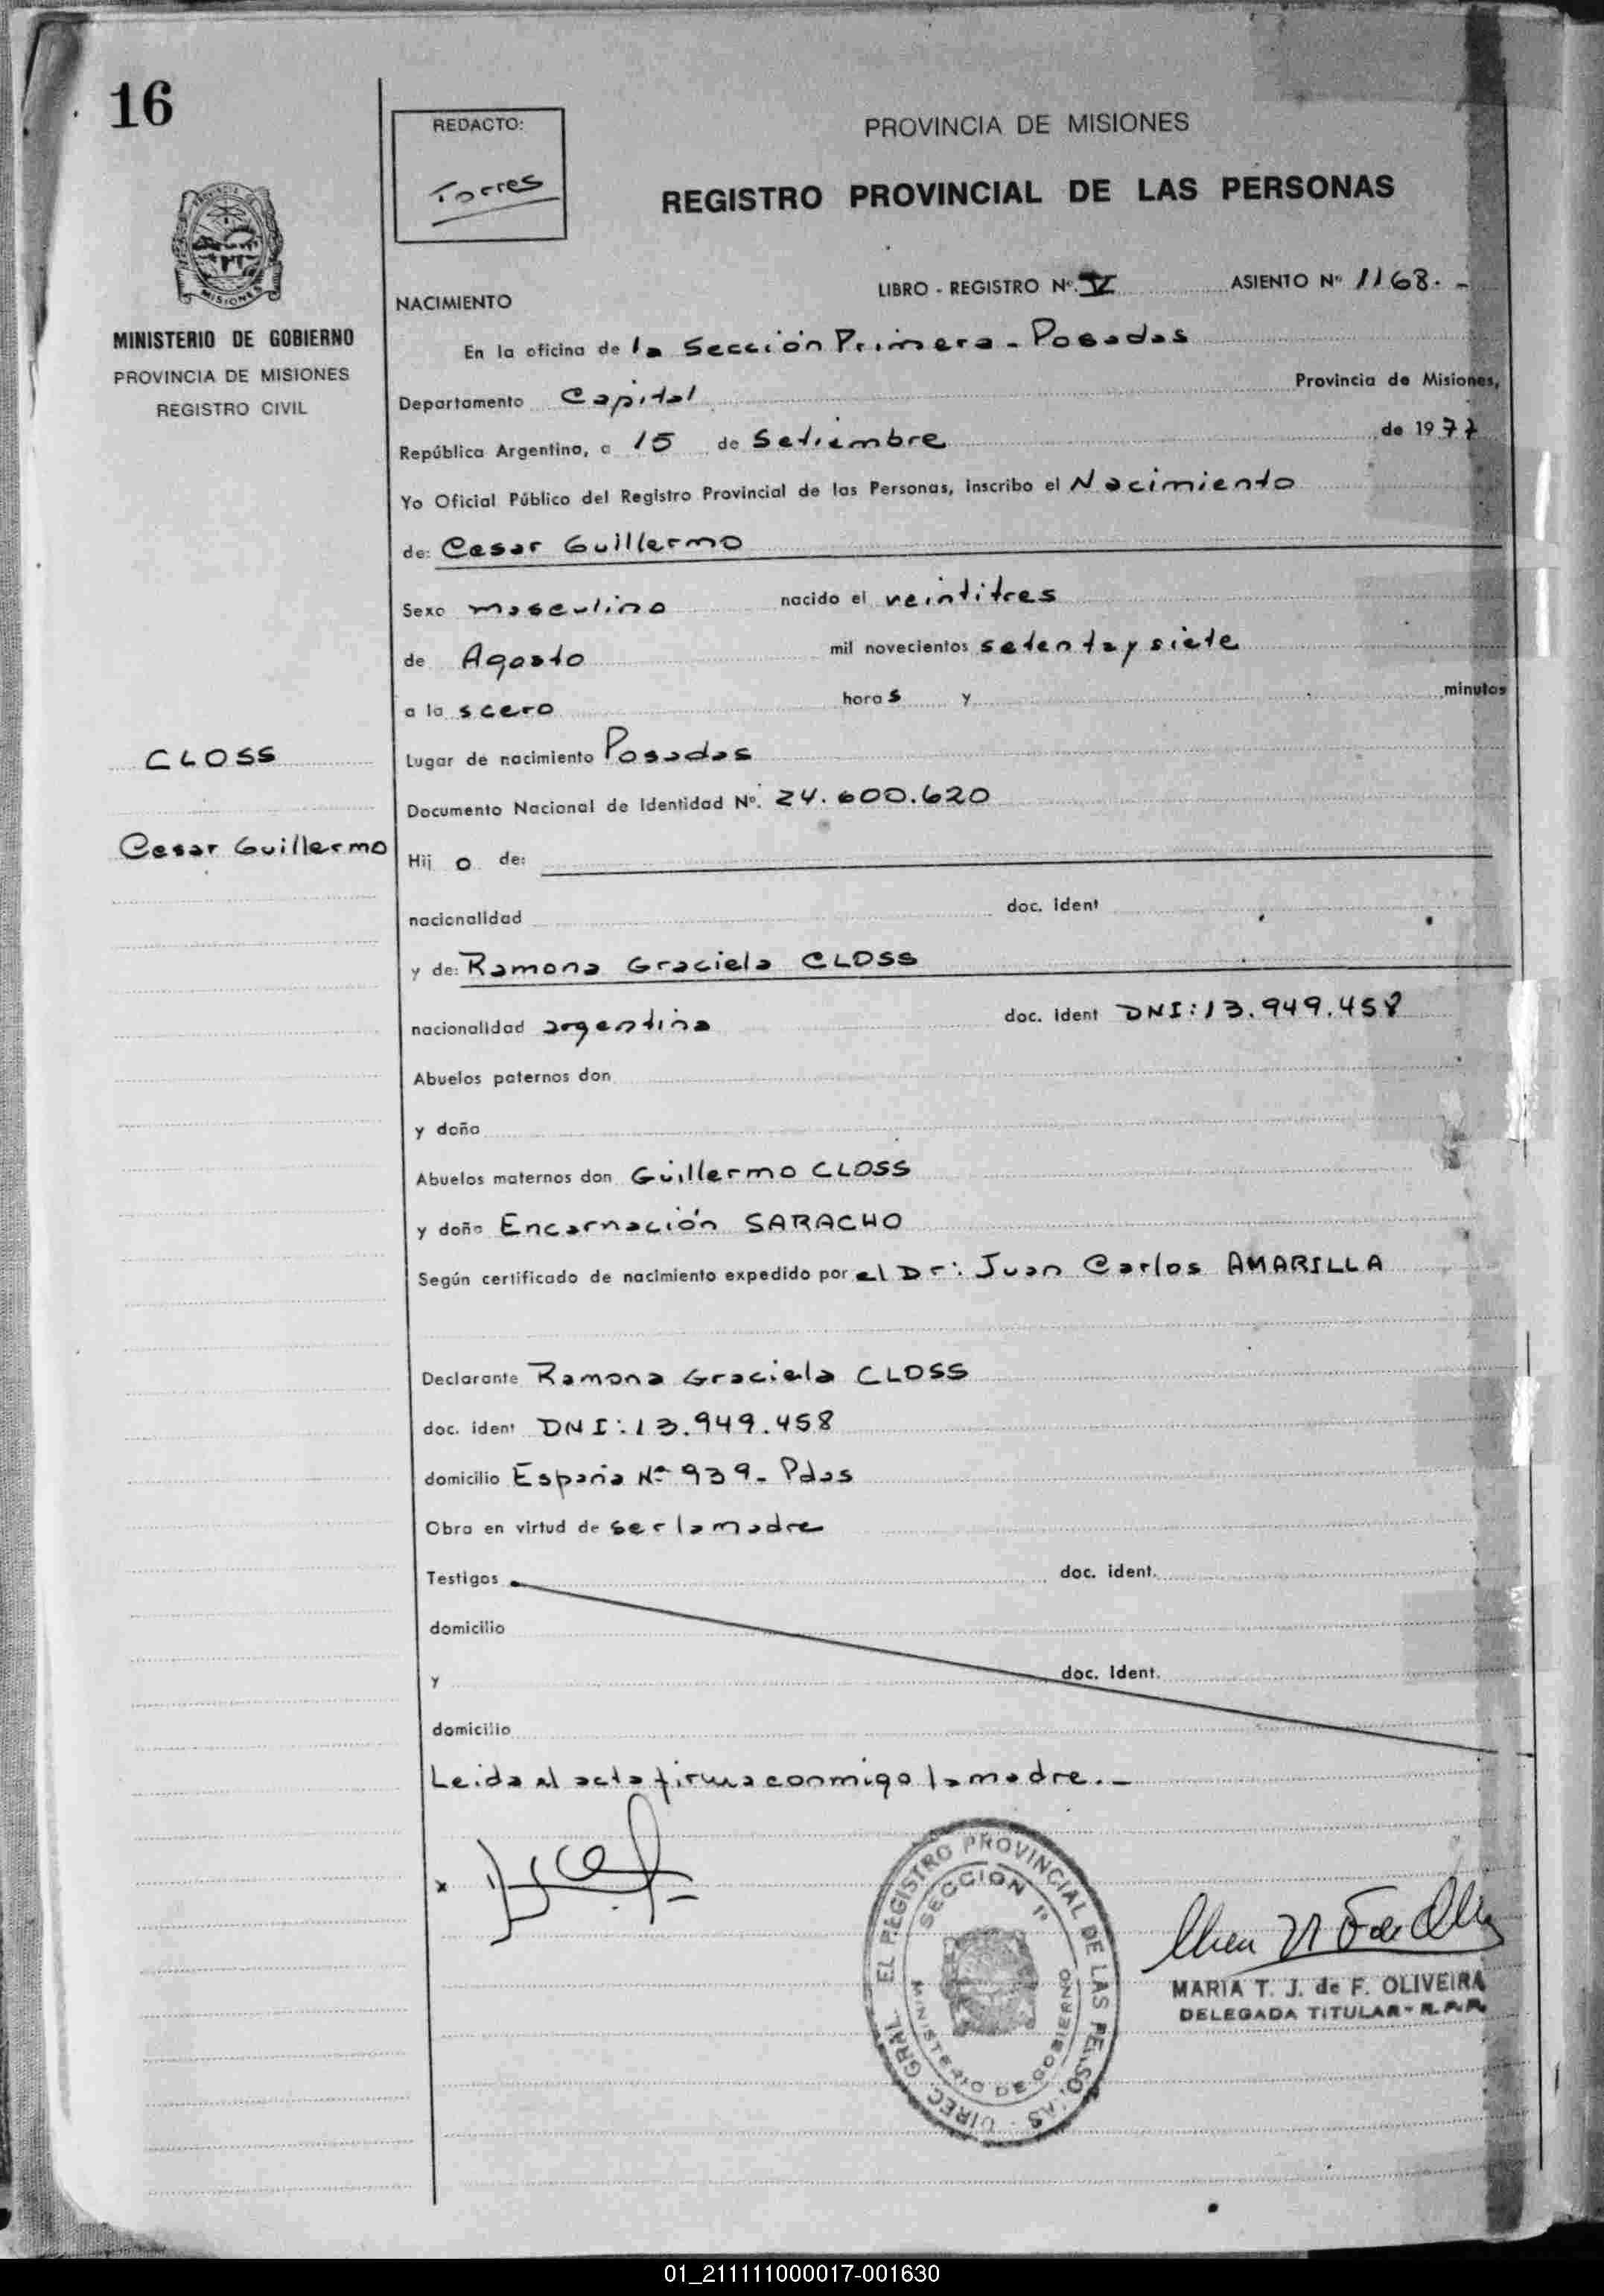 16
REDACTO:
Torres
PROVINCIA DE MISIONES
REGISTRO PROVINCIAL DE LAS PERSONAS
MISIONES
MINISTERIO DE GOBIERNO
PROVINCIA DE MISIONES
REGISTRO CIVIL
LIBRO - REGISTRO Nº. V ASIENTO Nº 1168. -
NACIMIENTO
En la oficina de la Sección Primera - Posadas
Departamento Capital Provincia de Misiones,
República Argentina, a 15 de Setiembre de 1977
Yo Oficial Público del Registro Provincial de las Personas, inscribo el Nacimiento
de: Cesar Guillermo
Sexo masculino nacido el veintitres
de Agosto mil novecientos setenta y siete
a la s cero hora s y minutos
CLOSS
Lugar de nacimiento Posadas
Documento Nacional de Identidad Nº. 24.600.620
Cesar Guillermo
Hij o de:
nacionalidad doc. ident
y de: Ramona Graciela CLOSS
nacionalidad argentina doc. ident DNI: 13.949.458
Abuelos paternos don
y doña
Abuelos maternos don Guillermo CLOSS
y doña Encarnación SARACHO
Según certificado de nacimiento expedido por el Dr: Juan Carlos AMARILLA
Declarante Ramona Graciela CLOSS
doc. ident DNI: 13.949.458
domicilio España Nº 939 - Pdas
Obra en virtud de ser la madre
Testigos doc. ident.
domicilio
y doc. ident.
domicilio
Leida el acta firma conmigo la madre. -
x
DIREC. GRAL. EL REGISTRO PROVINCIAL DE LAS PERSONAS
SECCION 1ª
MINISTERIO DE GOBIERNO
MARIA T. J. de F. OLIVEIRA
DELEGADA TITULAR - R.P.P.
01_211111000017-001630